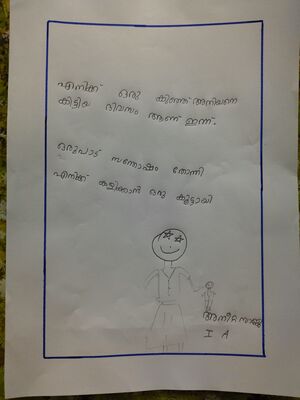 എനിക്ക് ഒരു കുഞ്ഞ് അനിയനെ
കിട്ടിയ ദിവസം ആണ് ഇന്ന്.
ഒരുപാട് സന്തോഷം തോന്നി
എനിക്ക് കളിക്കാൻ ഒരു കൂട്ടായി
I A